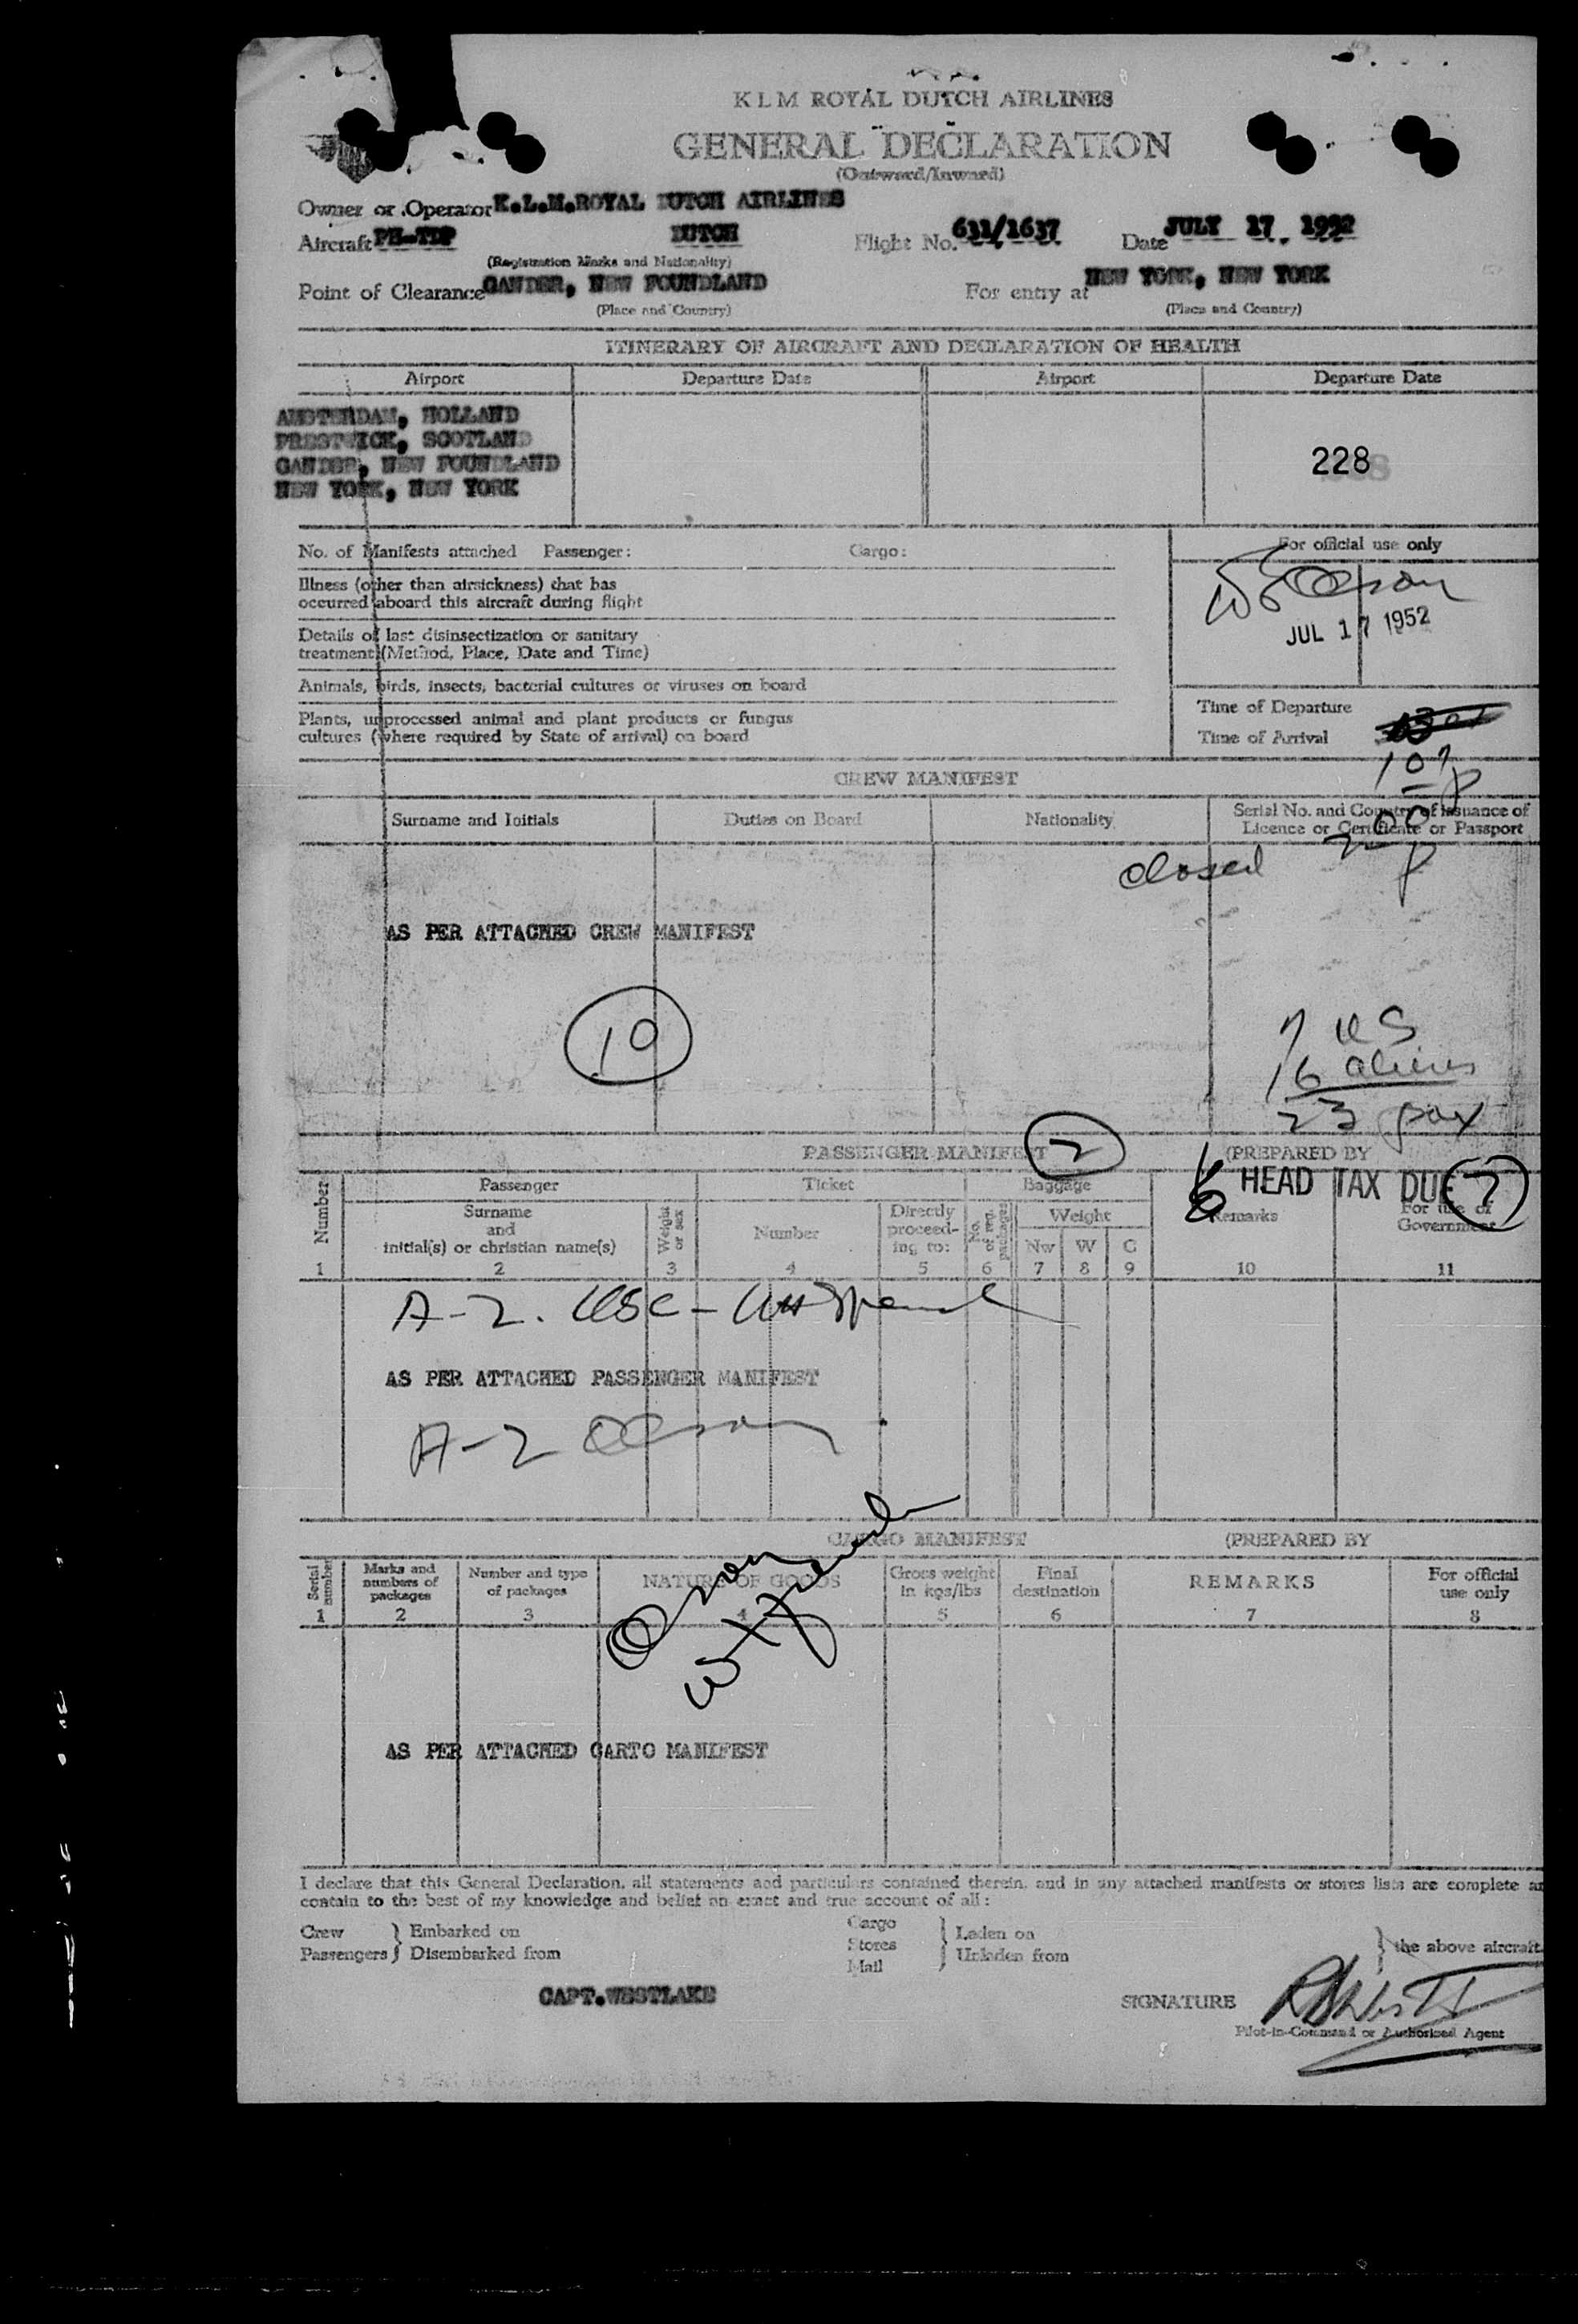 KLM ROYAL DUTCH AIRLINES
GENERAL DECLARATION
(Outward/Inward)
Owner or Operator K.L.M.ROYAL DUTCH AIRLINES
Aircraft PH-TDP DUTCH Flight No. 631/1637 Date JULY 17, 1952
(Registration Marks and Nationality)
Point of Clearance GANDER, NEW FOUNDLAND For entry at NEW YORK, NEW YORK
(Place and Country) (Place and Country)
ITINERARY OF AIRCRAFT AND DECLARATION OF HEALTH
Airport Departure Date Airport Departure Date
AMSTERDAM, HOLLAND
PRESTWICK, SCOTLAND
GANDER, NEW FOUNDLAND
NEW YORK, NEW YORK
228
No. of Manifests attached Passenger: Cargo:
For official use only
Illness (other than airsickness) that has
occurred aboard this aircraft during flight
JUL 17 1952
Details of last disinsectization or sanitary
treatment (Method, Place, Date and Time)
Animals, birds, insects, bacterial cultures or viruses on board
Plants, unprocessed animal and plant products or fungus
cultures (where required by State of arrival) on board
Time of Departure
Time of Arrival
107 p
CREW MANIFEST
Surname and Initials Duties on Board Nationality Serial No. and Country of Issuance of
Licence or Certificate or Passport
closed 200 p
AS PER ATTACHED CREW MANIFEST
10
7 US
16 aliens
23 pax
PASSENGER MANIFEST 2 (PREPARED BY
HEAD TAX DUE 7
Number Passenger Ticket Baggage
Surname
and
initial(s) or christian name(s)
Weight or sex
Number
Directly
proceed-
ing to:
No. of reg. packages
Weight
Nw W C
Remarks
For use of
Government
1 2 3 4 5 6 7 8 9 10 11
A-2. USC-
AS PER ATTACHED PASSENGER MANIFEST
A-2 Olson
CARGO MANIFEST (PREPARED BY
Serial number
Marks and
numbers of
packages
Number and type
of packages
NATURE OF GOODS
Gross weight
in kgs/lbs
Final
destination
REMARKS
For official
use only
1 2 3 4 5 6 7 8
AS PER ATTACHED CARTO MANIFEST
I declare that this General Declaration, all statements and particulars contained therein, and in any attached manifests or stores lists are complete an
contain to the best of my knowledge and belief an exact and true account of all:
Crew
Passengers
Embarked on
Disembarked from
Cargo
Stores
Mail
Laden on
Unladen from
the above aircraft.
CAPT.WESTLAKE
SIGNATURE
Pilot-in-Command or Authorised Agent